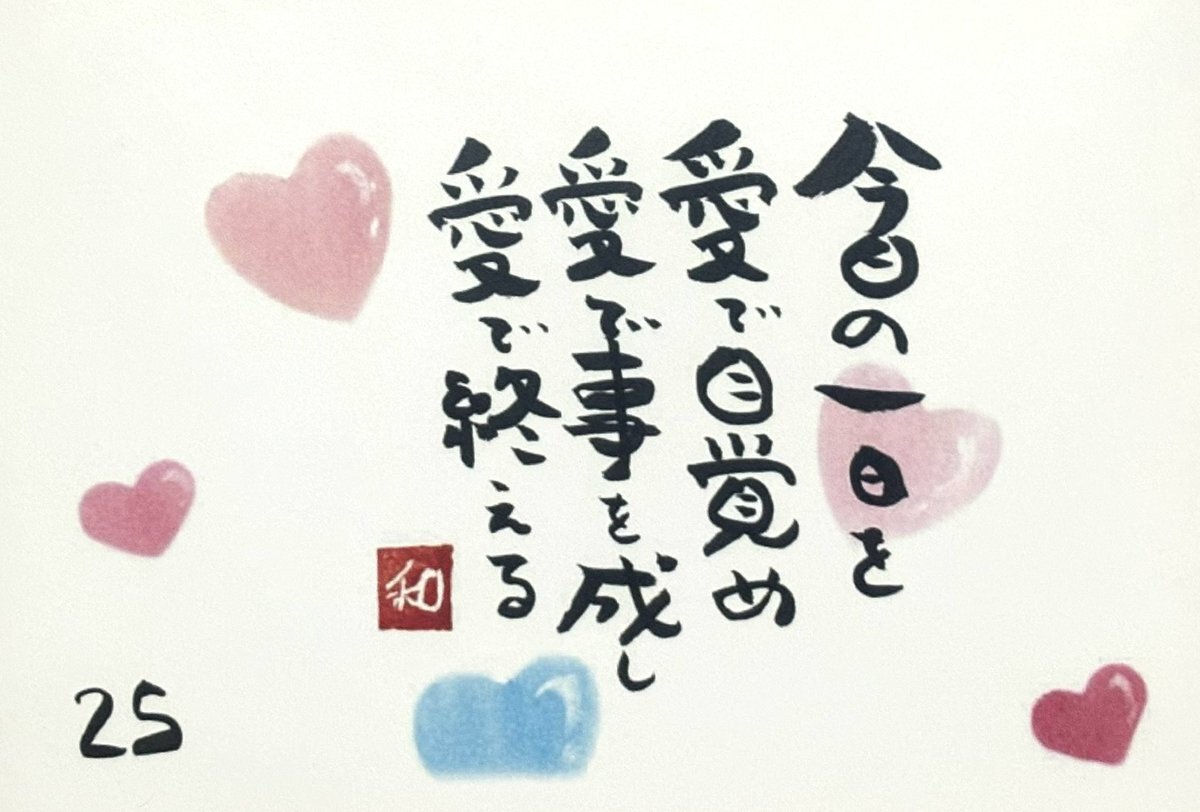 今日の一日を
愛で目覚め
愛で事を成し
愛で終える
和
25